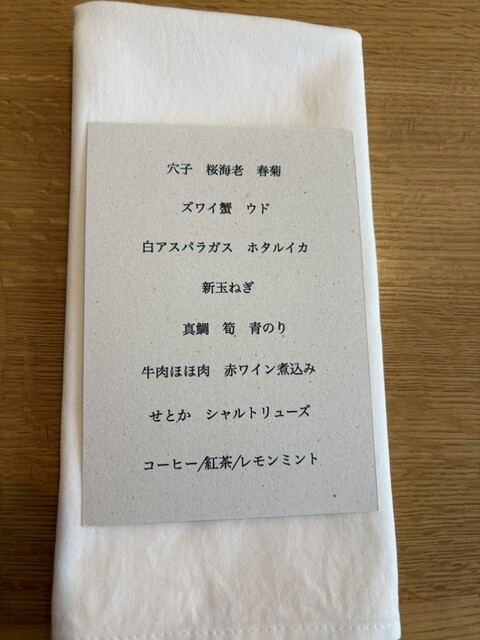 穴子　桜海老　春菊
ズワイ蟹　ウド
白アスパラガス　ホタルイカ
新玉ねぎ
真鯛　筍　青のり
牛肉ほほ肉　赤ワイン煮込み
せとか　シャルトリューズ
コーヒー/紅茶/レモンミント